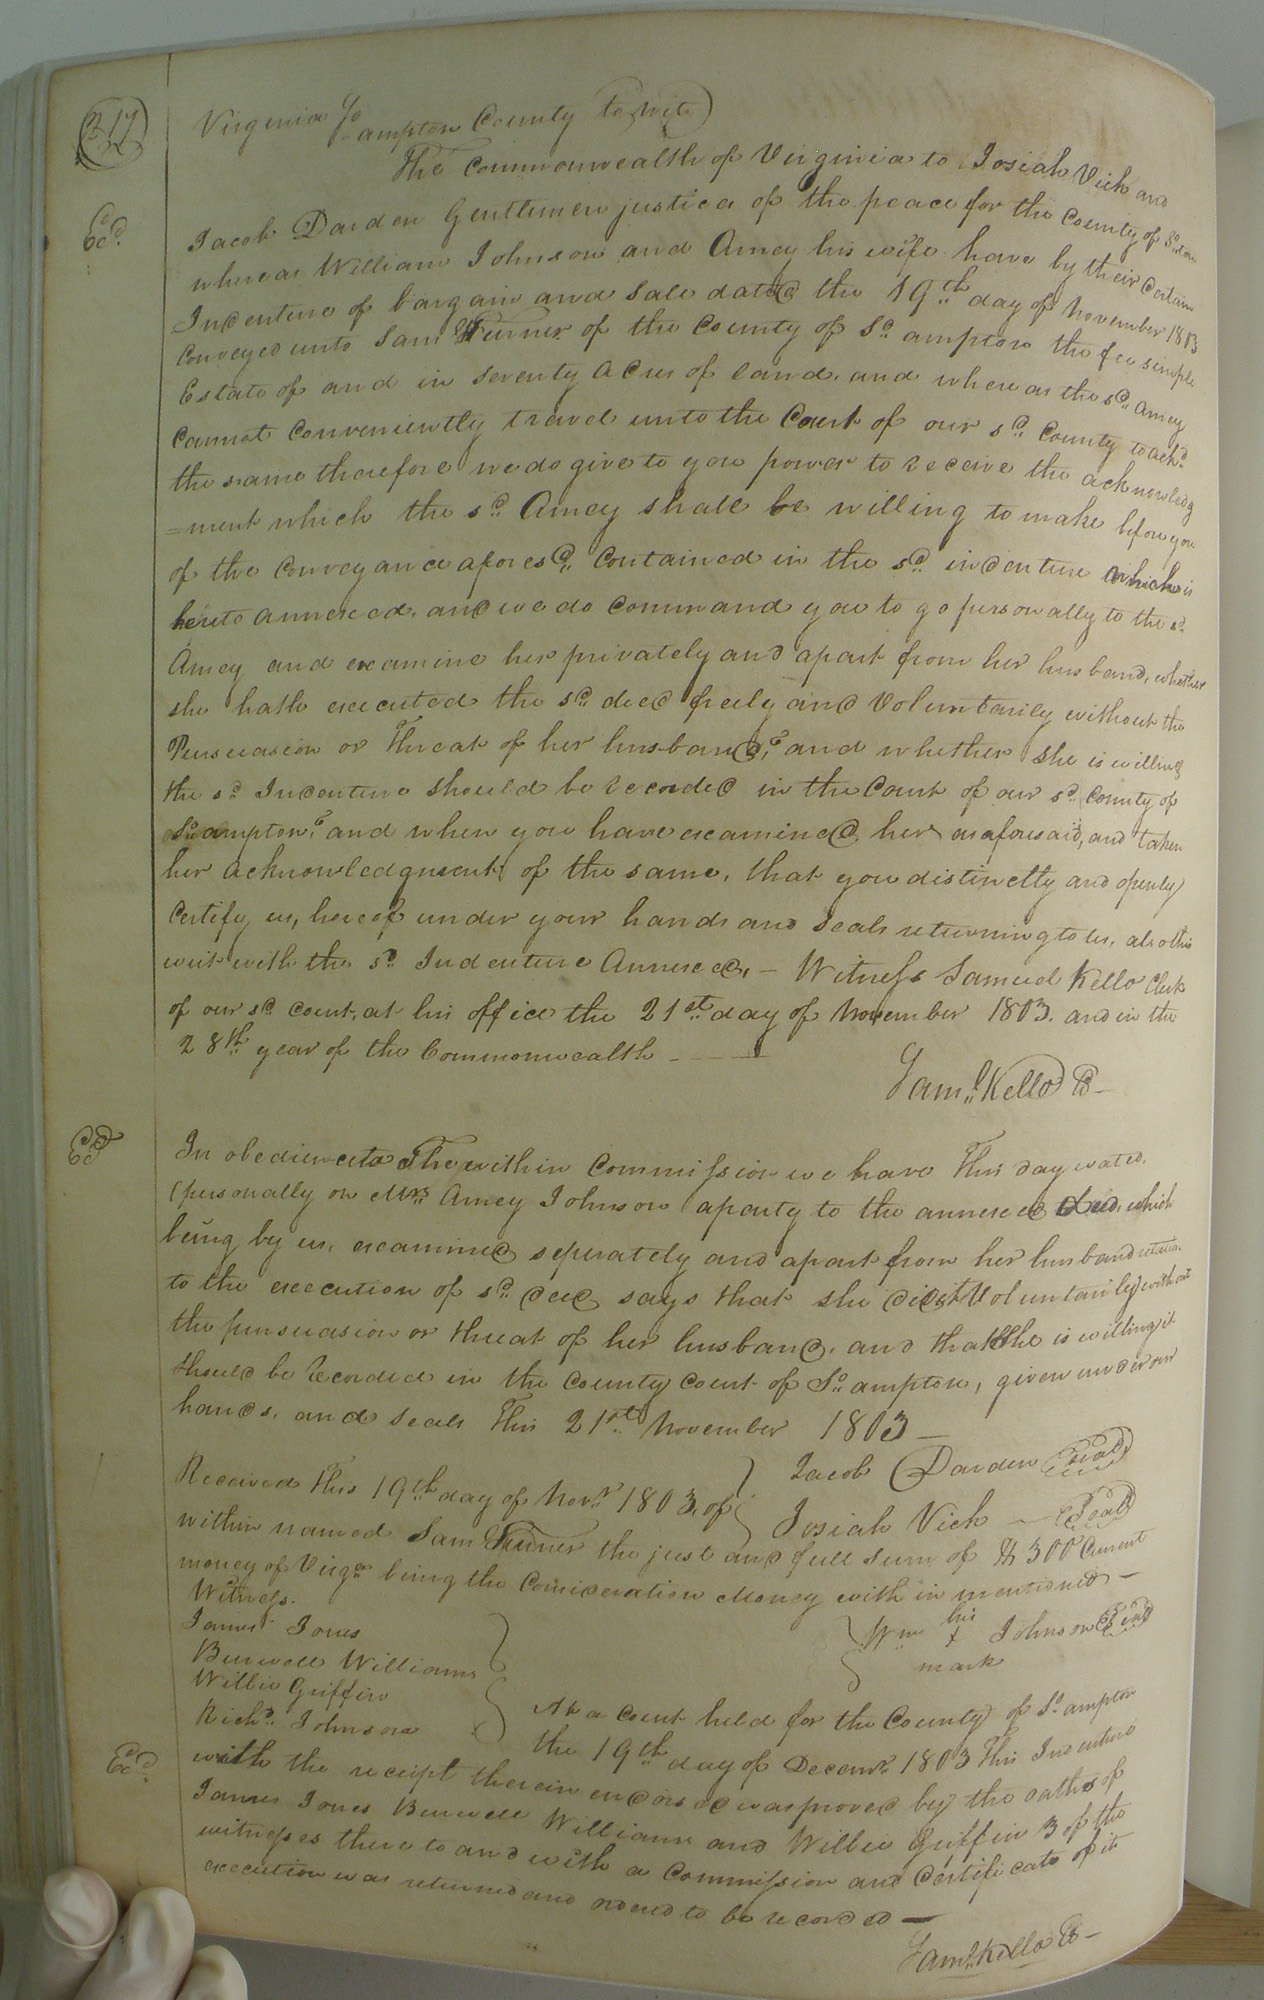 217
Virginia So ampton County to wit)
The Commonwealth of Virginia to Josiah Vick and
Exd.
Jacob Darden Gentlemen justice of the peace for the County of So.
whereas William Johnson and Amey his wife have by their Certain
Indenture of bargain and Sale dated the 19th day of November 1803
Conveyed unto Saml Turner of the County of So. ampton the fee simple
Estate of and in Seventy Acres of land, and whereas the sd. Amey
Cannot Conveniently travel unto the Court of our sd. County to ackd.
the same therefore we do give to you power to receive the acknowledg
=ment which the sd. Amey shall be willing to make before you
of the Conveyance aforesd. Contained in the sd. indenture which is
hereto annexed, and we do Command you to go personally to the sd.
Amey and examine her privately and apart from her husband, whether
she hath executed the sd. deed freely and Voluntarily without the
Persuasion or Threat of her husband, and whether she is willing
the sd. Indenture should be recorded in the Court of our sd. County of
So. ampton, and when you have examined her as aforesaid, and taken
her acknowledgment of the same, that you distinctly and openly
Certify us, hereof under your hands and Seals returning to us, also this
writ with the sd. Indenture Annexed, – Witness Samuel Kello Clerk
of our sd. Court, at his office the 21st. day of November 1803. and in the
28th year of the Commonwealth
Saml. Kello Cl –
Exd
In obedience to The within Commission we have This day waited
(personally on Mrs. Amey Johnson a party to the annexed Deed, which
being by us, examined seperately and apart from her husband
to the execution of sd. deed says that she did it Voluntarily without
the persuasion or threat of her husband, and that She is willing it
should be Recorded in the County Court of So. ampton, given under our
hands, and Seals This 21st. November 1803 –
Jacob Darden Seal
Received This 19th day of Novr. 1803, of
Josiah Vick – Seal
within named Saml Turner the just and full Sum of 300 Current
money of Virga. being the Consideration Money with in mentioned –
Witness.
James Jones
Burwell Williams
Willie Griffin
Richd. Johnson
Wm his x mark Johnson Seal
At a Court held for the County of So. ampton
the 19th day of Decemr. 1803 This Indenture
Exd.
with the receipt therein endorsed was proved by the oaths of
James Jones Burwell Williams and Willie Griffin 3 of the
witnesses there to and with a Commission and Certificate of it
execution was returned and ordered to be recorded –
Saml. Kello Cl –